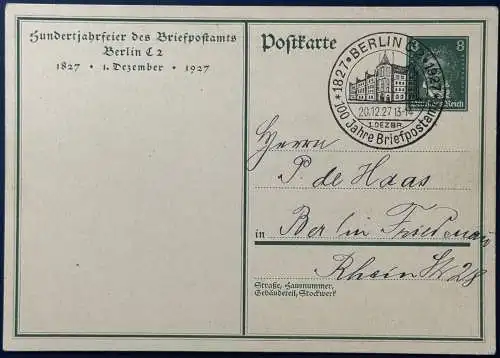 Hundertjahrfeier des Briefpostamts
Berlin C 2
1827 • 1. Dezember • 1927
Postkarte
* 1827 * BERLIN * 1927 *
20.12.27 13-14
1.DEZBR.
100 Jahre Briefpostamt
8 8
Deutsches Reich
Herrn
P. de Haas
in Berlin Friedenau
Rhein Str 28
Straße, Hausnummer,
Gebäudeteil, Stockwerk